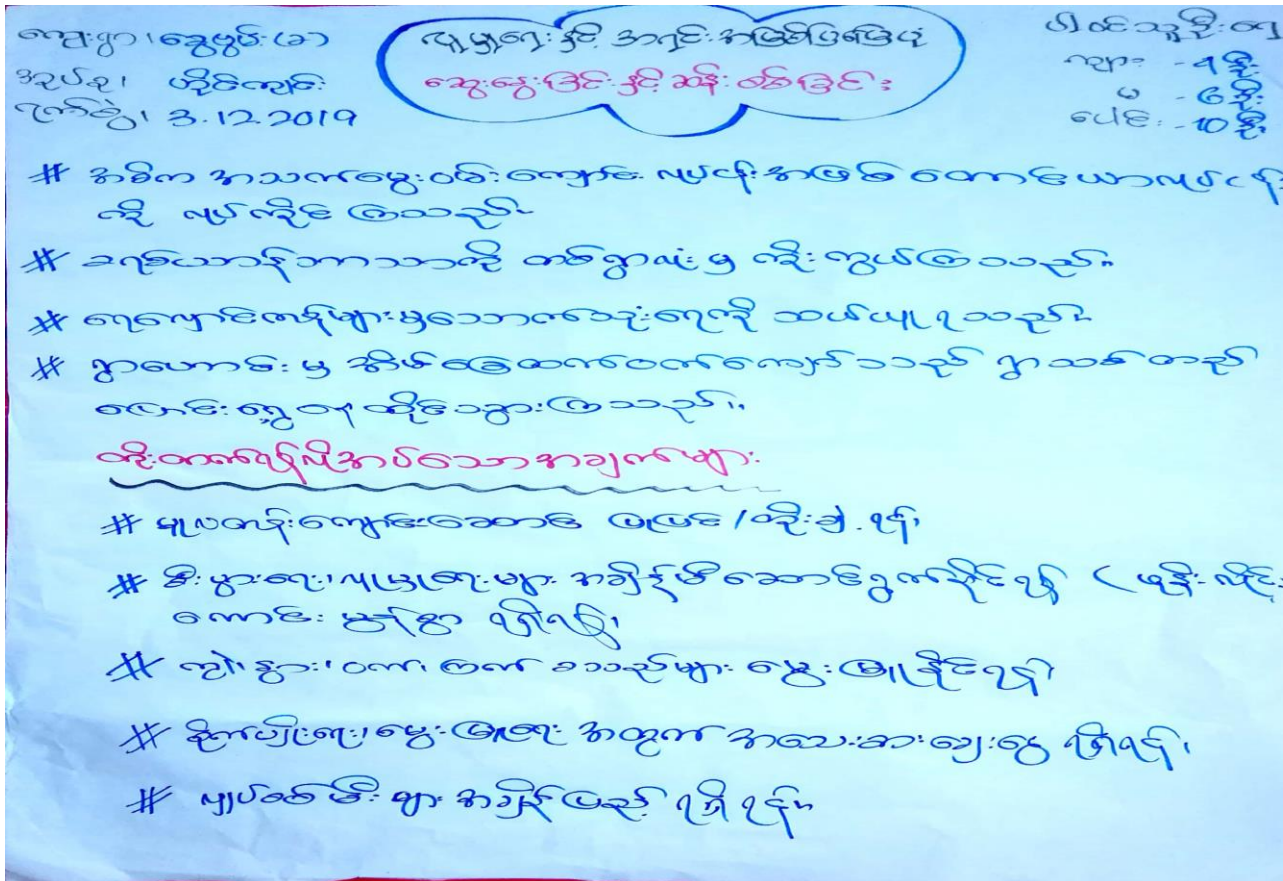 ကျေးရွာ၊ ချွေးပွမ်း (ခ)
အုပ်စု၊ ဟိုင်ကျင်း
ရက်စွဲ၊ 3.12.2019
လူမှုရေးနှင့် အရင်းအမြစ်ပြမြေပုံ
ဆွေးနွေးခြင်းနှင့် ဆန်းစစ်ခြင်း
ပါဝင်သူဦးရေ
ကျား - 4 ဦး
မ - 6 ဦး
ပေါင်း - 10 ဦး
# အဓိက အသက်မွေးဝမ်းကျောင်း လုပ်ငန်းအဖြစ် တောင်ယာလုပ်ငန်း
ကို လုပ်ကိုင် ကြသည်။
# ခရစ်ယာန်ဘာသာကို တစ်ရွာလုံးမှ ကိုးကွယ်ကြသည်။
# ရေလှောင်ကန်များမှသောက်သုံးရေကို ဆယ်ယူရသည်။
# ရွာဟောင်းမှ အိမ်ခြေထက်ဝက်ကျော်သည် ရွာသစ်တည်
ပြောင်းရွှေ့ နေထိုင်သွားကြသည်။
တိုးတက်ရန်လိုအပ်သောအချက်များ
# မူလတန်းကျောင်းဆောင် ပြုပြင်/တိုးချဲ့ရန်၊
# စီးပွားရေး၊လူမှုရေးများ အချိန်မီဆောင်ရွက်နိုင်ရန် (ဖုန်းလိုင်း
ကောင်းမွန်စွာ ရှိရန်၊
# ကျွဲ၊နွား၊ဝက်၊ကြက် စသည်များ မွေးမြူနိုင်ရန်၊
# စိုက်ပျိုးရေး၊မွေးမြူရေး အတွက် အသေးစားချေးငွေ ရှိရန်၊
# လျှပ်စစ်မီးများ အချိန်ပြည့် ရရှိရန်။